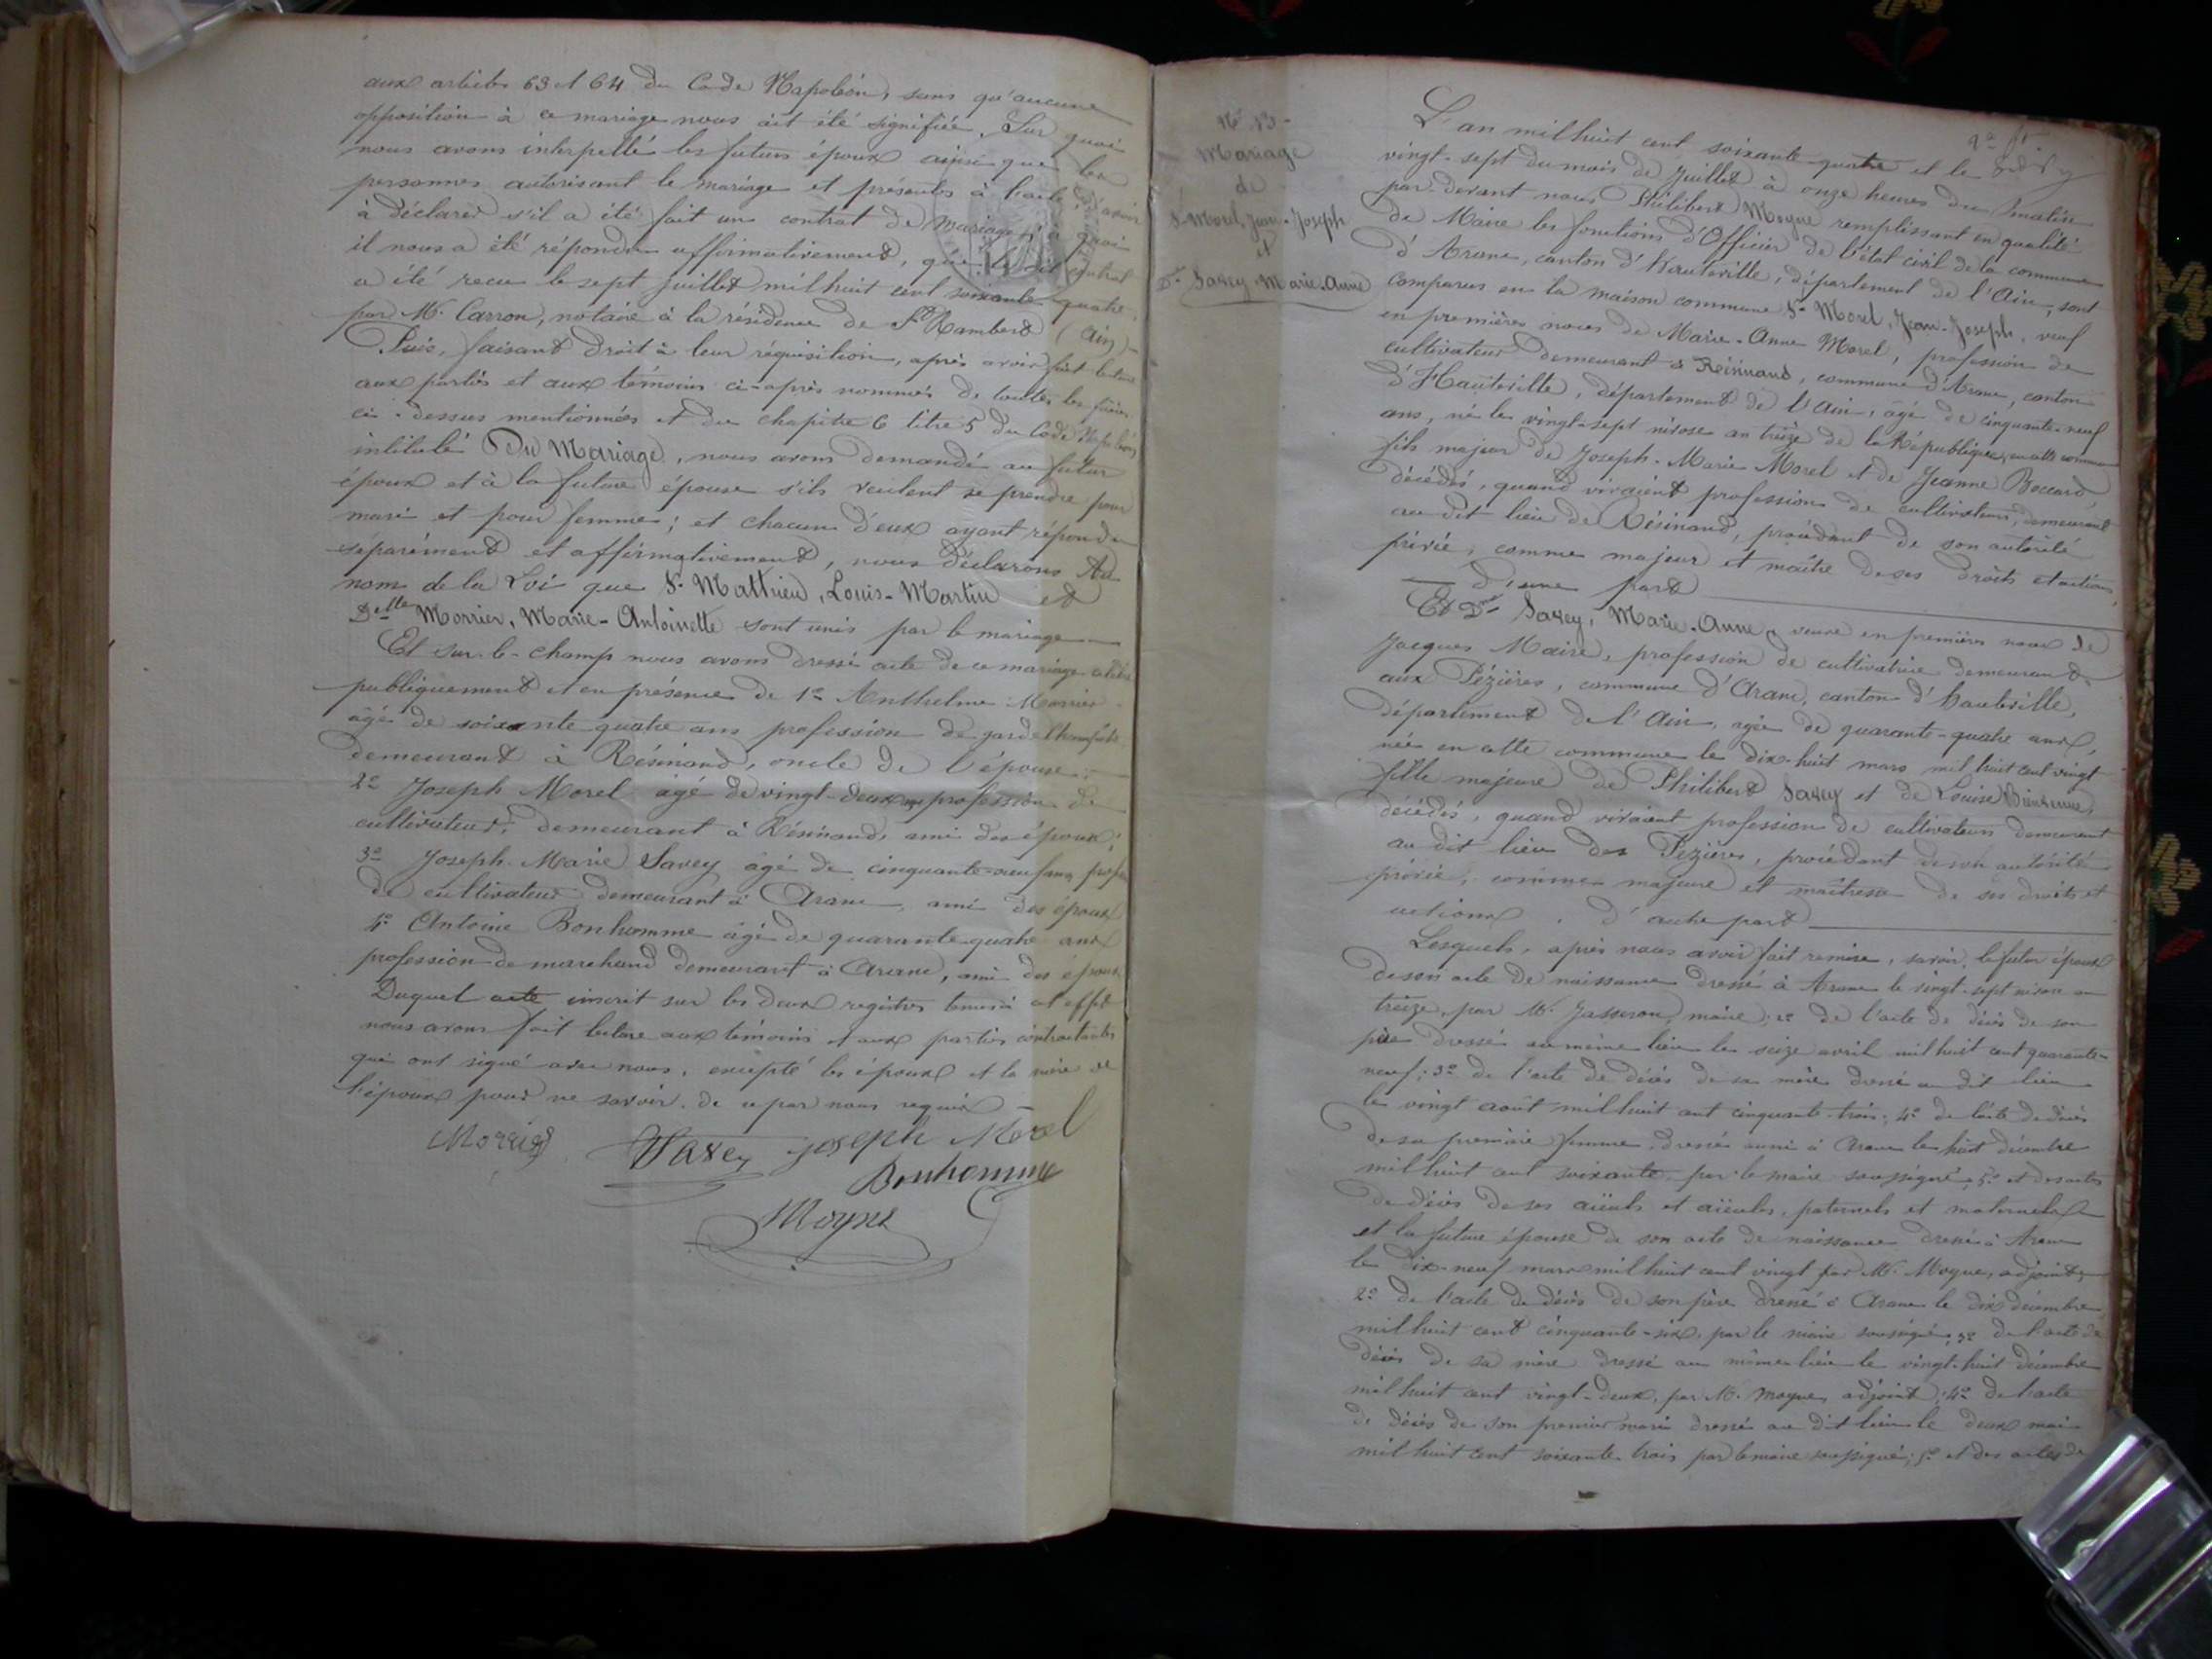 aux articles 63 et 64 du Code Napoléon, sans qu'aucune
opposition à ce mariage nous ait été signifiée. Sur quoi
nous avons interpellé les futurs époux ainsi que les
personnes autorisant le mariage et présentes à l'acte, d'avoir
à déclarer s'il a été fait un contrat de mariage, à quoi
il nous a été répondu affirmativement, que le dit contrat
a été recu le sept juillet mil huit cent soixante-quatre,
par M. Carron, notaire à la résidence de St Rambert (Ain) -
Puis, faisant droit à leur réquisition, après avoir fait lecture
aux parties et aux témoins ci-après nommés de toutes les pièces
ci-dessus mentionnées et du chapitre 6 titre 5 du Code Napoléon
intitulé Du Mariage, nous avons demandé au futur
époux et à la future épouse s'ils veulent se prendre pour
mari et pour femme; et chacun d'eux ayant répondu
séparément et affirmativement, nous déclarons Au
nom de la Loi que Sr Matthieu, Louis-Martin et
Delle Morrier, Marie-Antoinette sont unis par le mariage
Et sur-le-champ nous avons dressé acte de ce mariage célébré
publiquement et en présence de 1° Anthelme Morrier
âgé de soixante quatre ans profession de garde
demeurant à Résinand, oncle de l'épouse;
2° Joseph Morel âgé de vingt-deux ans profession de
cultivateur, demeurant à Résinand, ami des époux;
3° Joseph-Marie Savey âgé de cinquante-neuf ans, profes
de cultivateur demeurant à Aranc, ami des époux
4° Antoine Bonhomme âgé de quarante-quatre ans
profession de marchand demeurant à Aranc, ami des époux
Duquel acte inscrit sur les deux registres tenus à cet effet
nous avons fait lecture aux témoins et aux parties contractantes
qui ont signé avec nous, excepté les époux et la mère de
l'époux pour ne savoir, de ce par nous requis
Morrier Savey Joseph Morel
Bonhomme
Moyne
N° 13 -
Mariage
de
Sr Morel, Jean-Joseph
et
De Savey, Marie-Anne
L'an mil huit cent soixante-quatre et le
vingt-sept du mois de Juillet à onze heures du matin
par devant nous Philibert Moyne remplissant en qualité
de Maire les fonctions d'Officier de l'état civil de la commune
d'Aranc, canton d'Hauteville, département de l'Ain, sont
comparus en la maison commune Sr Morel, Jean-Joseph, veuf
en premières noces de Marie-Anne Morel, profession de
cultivateur demeurant à Résinand, commune d'Aranc, canton
d'Hauteville, département de l'Ain, âgé de cinquante-neuf
ans, né le vingt-sept nivose an treize de la République, en cette commune
fils majeur de Joseph-Marie Morel et de Jeanne Boccard
décédés, quand vivaient profession de cultivateurs, demeurant
au dit lieu de Résinand, procédant de son autorité
privée, comme majeur et maître de ses droits et actions,
d'une part
Et De Savey, Marie-Anne, veuve en premières noces de
Jacques Maire, profession de cultivatrice demeurant
aux Pézières, commune d'Aranc, canton d'Hauteville,
département de l'Ain, âgée de quarante-quatre ans,
née en cette commune le dix-huit mars mil huit cent vingt
fille majeure de Philibert Savey et de Louise
décédés, quand vivaient profession de cultivateurs demeurant
au dit lieu des Pézières, procédant de son autorité
privée, comme majeure et maîtresse de ses droits et
actions, d'autre part
Lesquels, après nous avoir fait remise, savoir, le futur époux
de son acte de naissance dressé à Aranc le vingt-sept nivose an
treize, par M. Jasseron, maire; 2° de l'acte de décès de son
père dressé au même lieu le seize avril mil huit cent quarante-
neuf; 3° de l'acte de décès de sa mère dressé au dit lieu
le vingt août mil huit cent cinquante-trois; 4° de l'acte de décès
de sa première femme, dressé aussi à Aranc le huit décembre
mil huit cent soixante, par le maire soussigné; 5° et des actes
de décès de ses aïeuls et aïeules, paternels et maternels
et la future épouse de son acte de naissance dressé à Aranc
le dix-neuf mars mil huit cent vingt par M. Moyne, adjoint;
2° de l'acte de décès de son père dressé à Aranc le dix décembre
mil huit cent cinquante-six, par le maire soussigné; 3° de l'acte de
décès de sa mère dressé au même lieu le vingt-huit décembre
mil huit cent vingt-deux, par M. Moyne, adjoint; 4° de l'acte
de décès de son premier mari dressé au dit lieu le deux mai
mil huit cent soixante-trois par le maire soussigné; 5° et des actes de